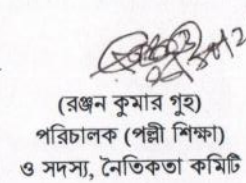 (রঞ্জন কুমার গুহ)
পরিচালক (পল্লী শিক্ষা)
ও সদস্য, নৈতিকতা কমিটি